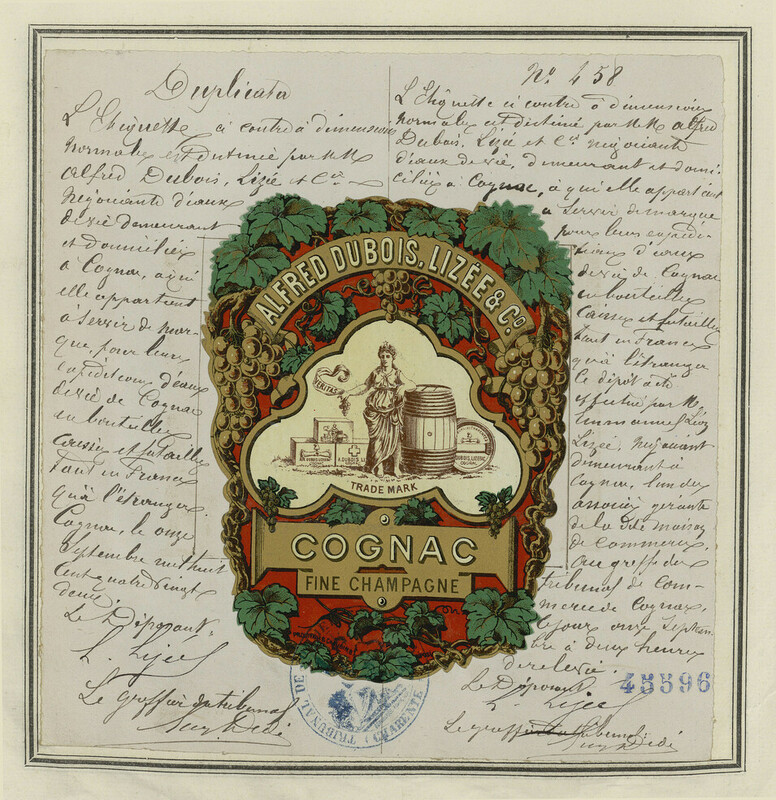 Duplicata
L'Etiquette ci contre à dimensions
Normales est destinée par MM
Alfred Dubois, Lizée et Cie
Négociants d'eaux
de vie demeurant
et domiciliés
à Cognac, à qui
elle appartient
à servir de mar-
que pour leurs
expéditions d'eaux
de vie de Cognac
en bouteilles
caisses et futailles
tant en France
qu'à l'étranger.
Cognac, le onze
Septembre mil huit
cent quatre vingt
deux.
Le Déposant,
L. Lizée
Le greffier du tribunal
No 458
L'Etiquette ci contre à dimensions
Normales est destinée par MM. Alfred
Dubois, Lizée et Cie négociants
d'eaux de vie, demeurant et domi-
ciliés à Cognac, à qui elle appartient
à servir de marque
pour leurs expédi-
tions d'eaux
de vie de Cognac
en bouteilles
caisses et futailles
tant en France
qu'à l'étranger
Le dépôt a été
effectué par M.
Emmanuel Léon
Lizée, négociant
demeurant à
Cognac, l'un des
associés gérants
de la dite maison
de commerce,
au greffe du
tribunal de com-
merce de Cognac,
ce jour onze Septem-
bre à deux heures
de relevée.
Le Déposant
L. Lizée
Le greffier du tribunal
ALFRED DUBOIS, LIZÉE & Co.
VERITAS
A. DUBOIS LI
DUBOIS, LIZEE
COGNAC
TRADE MARK
COGNAC
FINE CHAMPAGNE
TRIBUNAL DE
CHARENTE
45596